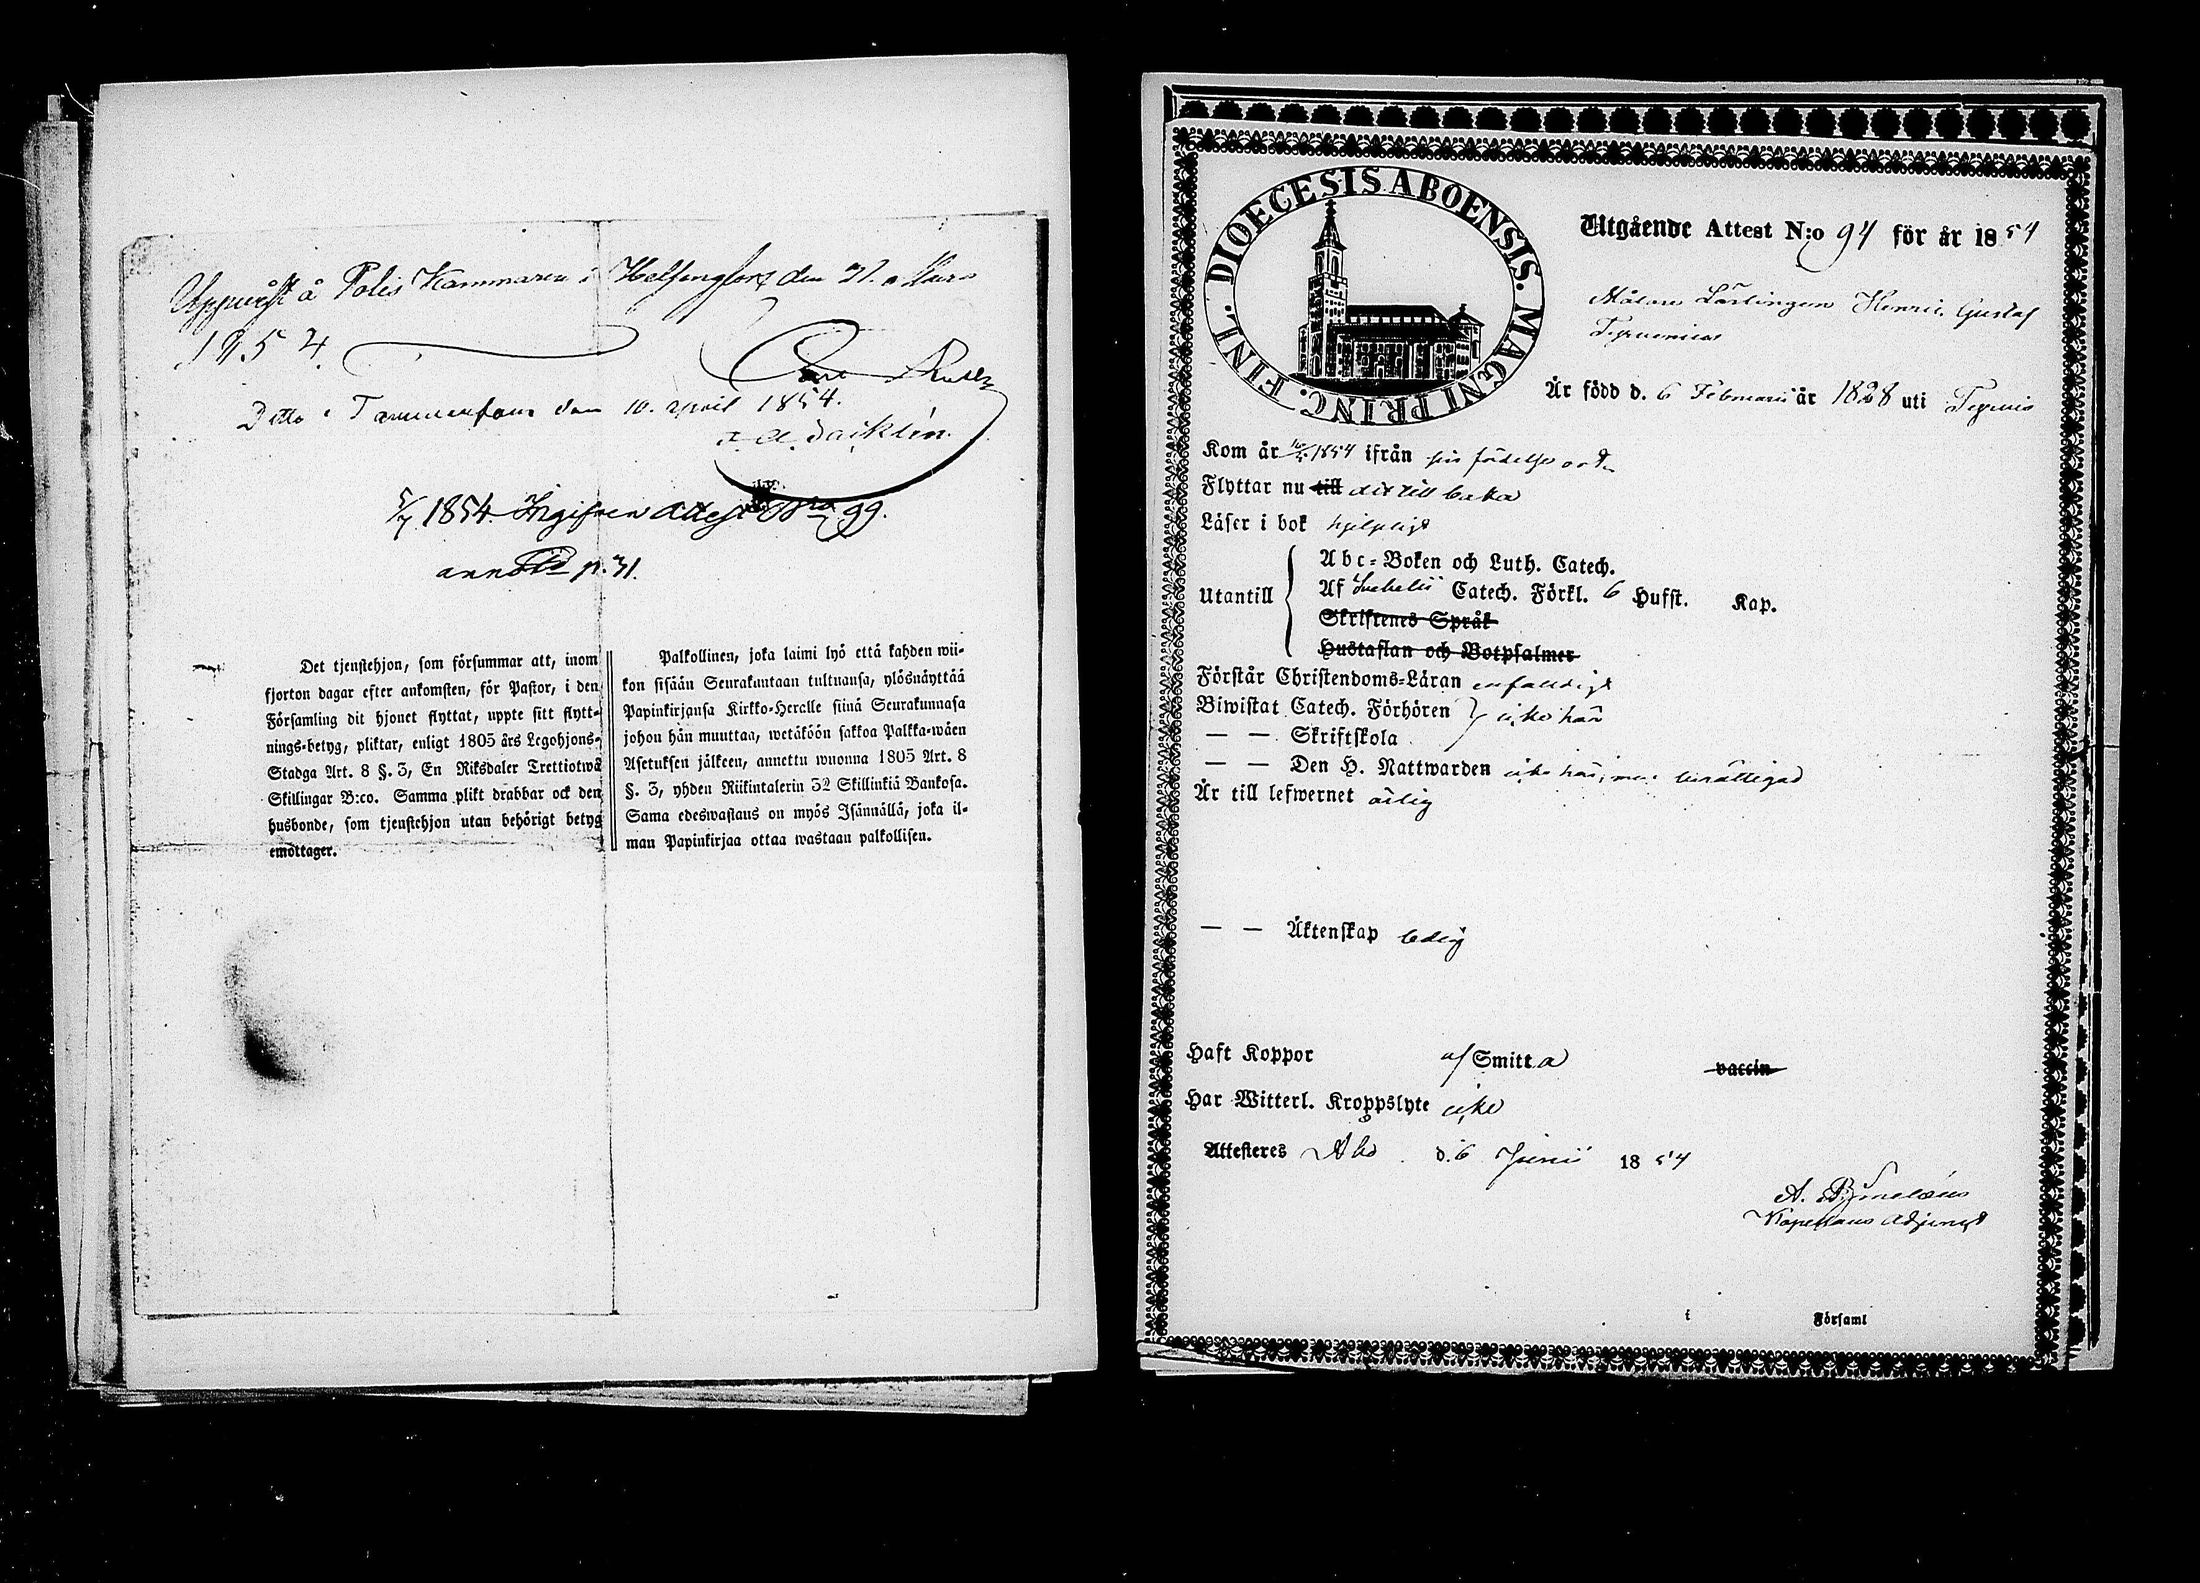 Uppwist å Polis Kammaren i Helsingfors den 31. Mars
1854.
Carl
Ditto i Tammerfors den 10. April 1854.
5/7 1854. Ingifven Attest N:ro 99.
annot p. 31.
Det tjenstehjon, som försummar att, inom
fjorton dagar efter ankomsten, för Pastor, i den
Församling dit hjonet flyttat, uppte sitt flytt-
nings-betyg, pliktar, enligt 1805 års Legohjons-
Stadga Art. 8 §. 3, En Riksdaler Trettiotwå
Skillingar B:co. Samma plikt drabbar ock den
husbonde, som tjenstehjon utan behörigt betyg
emottager.
Palkollinen, joka laimi lyö että kahden wii-
kon sisään Seurakuntaan tultuansa, ylösnäyttää
Papinkirjansa Kirkko-Heralle siinä Seurakunnasa
johon hän muuttaa, wetäköön sakkoa Palkka-wäen
Asetuksen jälkeen, annettu wuonna 1805 Art. 8
§. 3, yhden Riikintalerin 32 Skillinkiä Bankosa.
Sama edeswastaus on myös Isännällä, joka il-
man Papinkirjaa ottaa wastaan palkollisen.
DIOECESIS ABOENSIS. MAGNI PRINC. FINL.
Utgående Attest N:o 94 för år 1854
Målare Lärlingen Henric Gustaf
Är född d. 6 Februarii år 1828 uti
Kom år 1854 ifrån sin födelse ort
Flyttar nu till dit till baka
Läser i bok hjelpligt
Utantill
Abc-Boken och Luth. Catech.
Af Svebelii Catech. Förkl. 6 Hufst. Kap.
Skriftenes Språk
Hustaflan och Botpsalmer
Förstår Christendoms-Läran enfaldigt
Biwistat Catech. Förhören
icke här
— — Skriftskola
— — Den H. Nattwarden icke här, men berättigad
Är till lefwernet ärlig
— — Äktenskap ledig
Haft Koppor af Smitta vaccin
Har Witterl. Kroppslyte icke
Attesteres Åbo d. 6 Junii 1854
A.
Kapellans Adjunct
i Församl